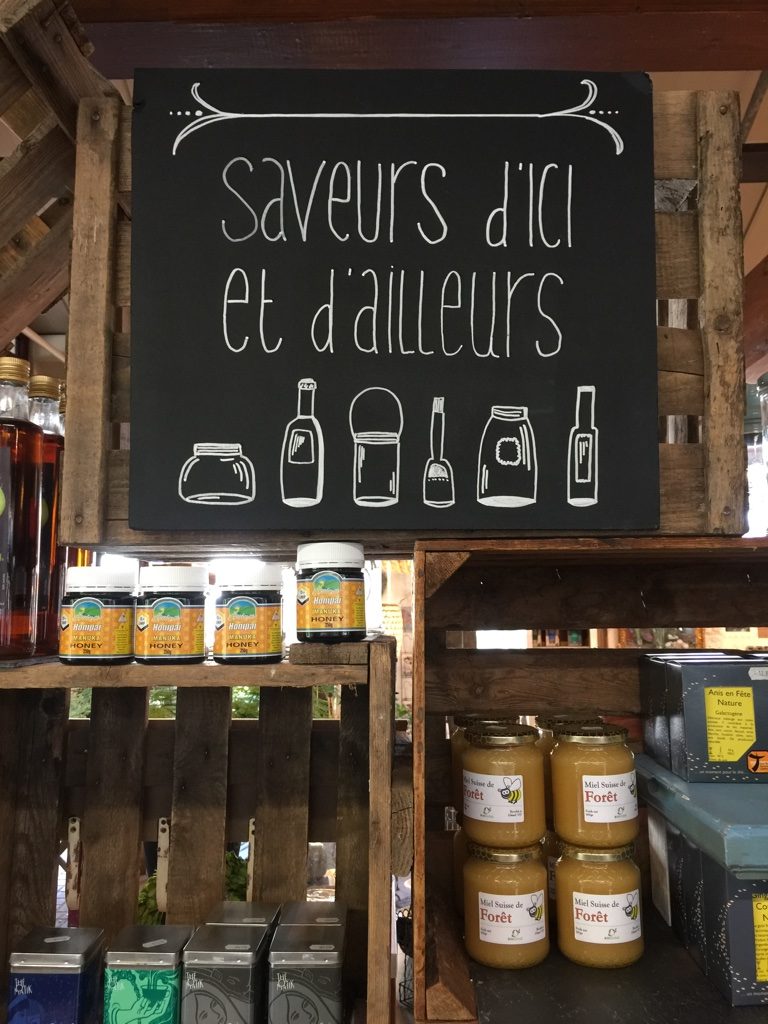 saveurs d'ici
et d'ailleurs
Honpai
MANUKA
HONEY
250g
Honpai
MANUKA
HONEY
250g
Honpai
MANUKA
HONEY
250g
Honpai
MANUKA
HONEY
250g
Anis en Fête
Nature
Galactogène
Miel Suisse de
Forêt
Miel Suisse de
Forêt
Miel Suisse de
Forêt
Miel Suisse de
Forêt